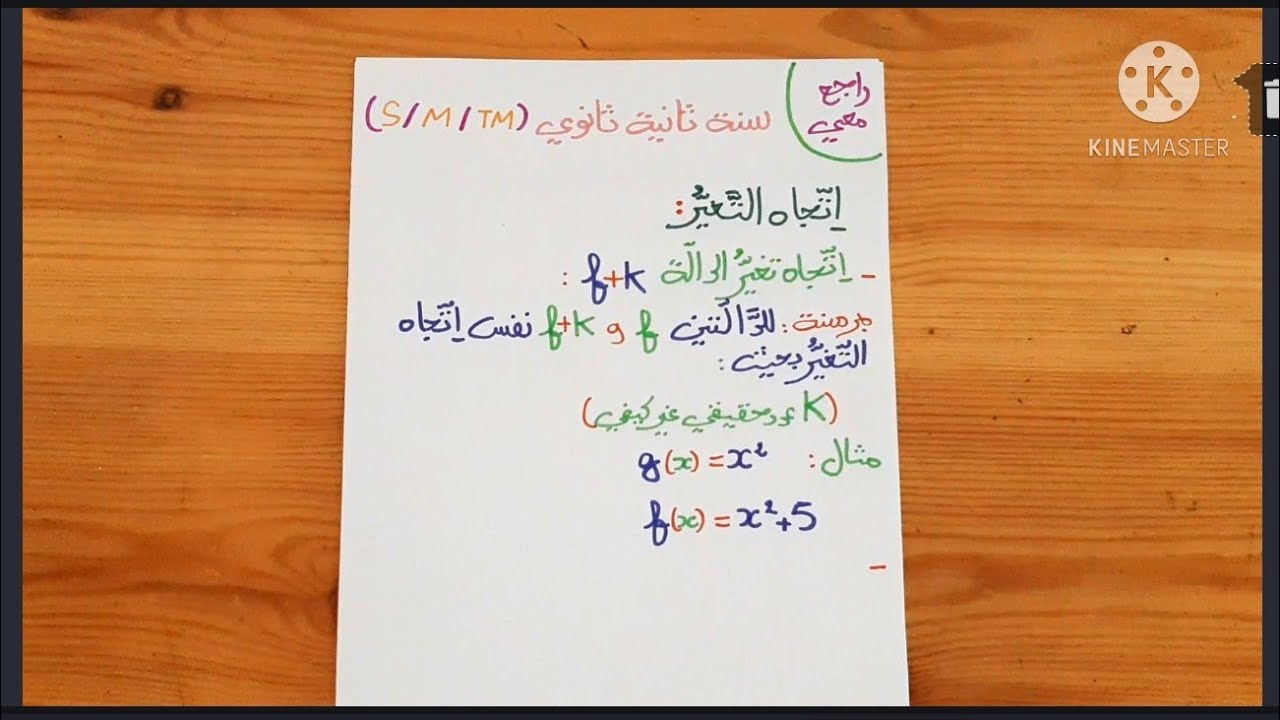 راجع
معي
سنة ثانية ثانوي (S/M/TM)
KINEMASTER
إتّجاه التّغيّر:
- إتّجاه تغيّر الدالّة f+k :
مبرهنة: للدّالتين f و f+k نفس إتّجاه
التّغيّر بحيث:
(K عدد حقيقي غير كيفي)
مثال: g(x) = x²
f(x) = x²+5
-